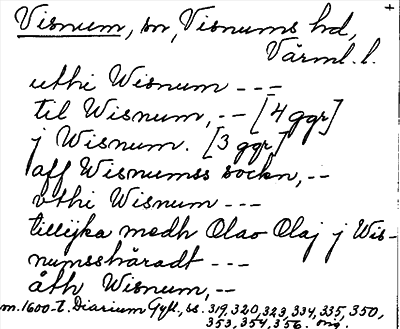 Visnum, sn, Visnums hd,
Värml. l.
uthi Wisnum ---
til Wisnum, -- [4 ggr]
j Wisnum. [3 ggr]
aff Wisnumss sockn, --
vthi Wisnum ---
tillijka medh Olao Olaj j Wis-
numsshäradt ---
åth Wisnum, --
m. 1600-t. Diarium Gyll., ss. 319, 320, 323, 334, 335, 350,
353, 354, 356. orig.